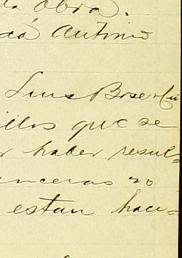 la obra.
cá Antonio
Luis Bose y Cía
illos que se
r haber resul-
enceras no
estan haci-